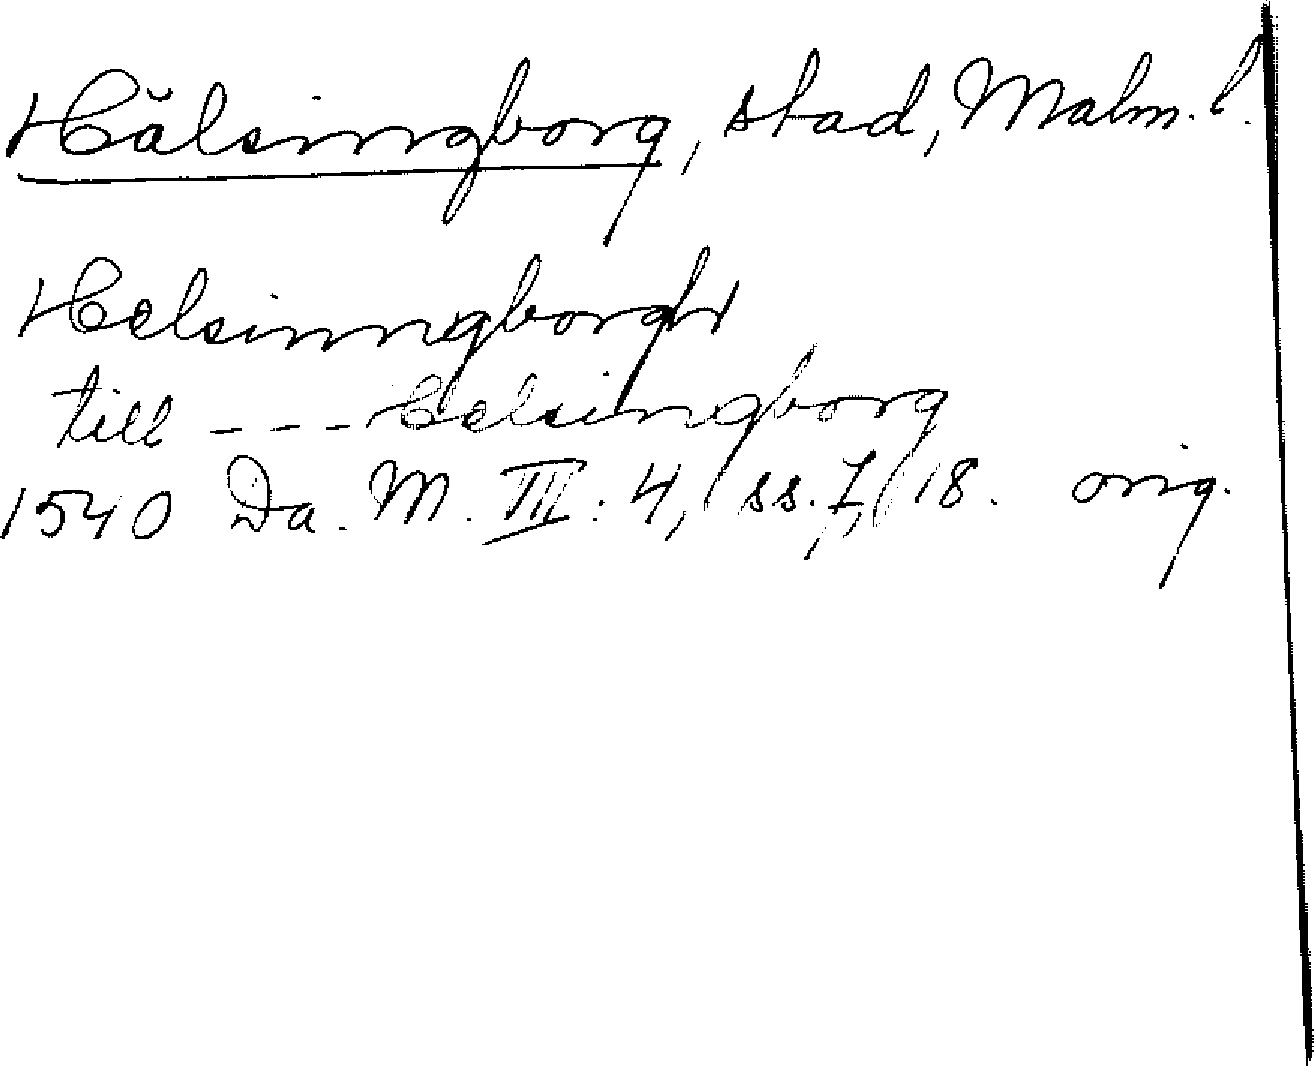 Hälsingborg, stad, Malm. l.
Helsinngborgh
till - - - Helsingborg
1540 Da. M. III: 4, ss. 7, 18. orig.